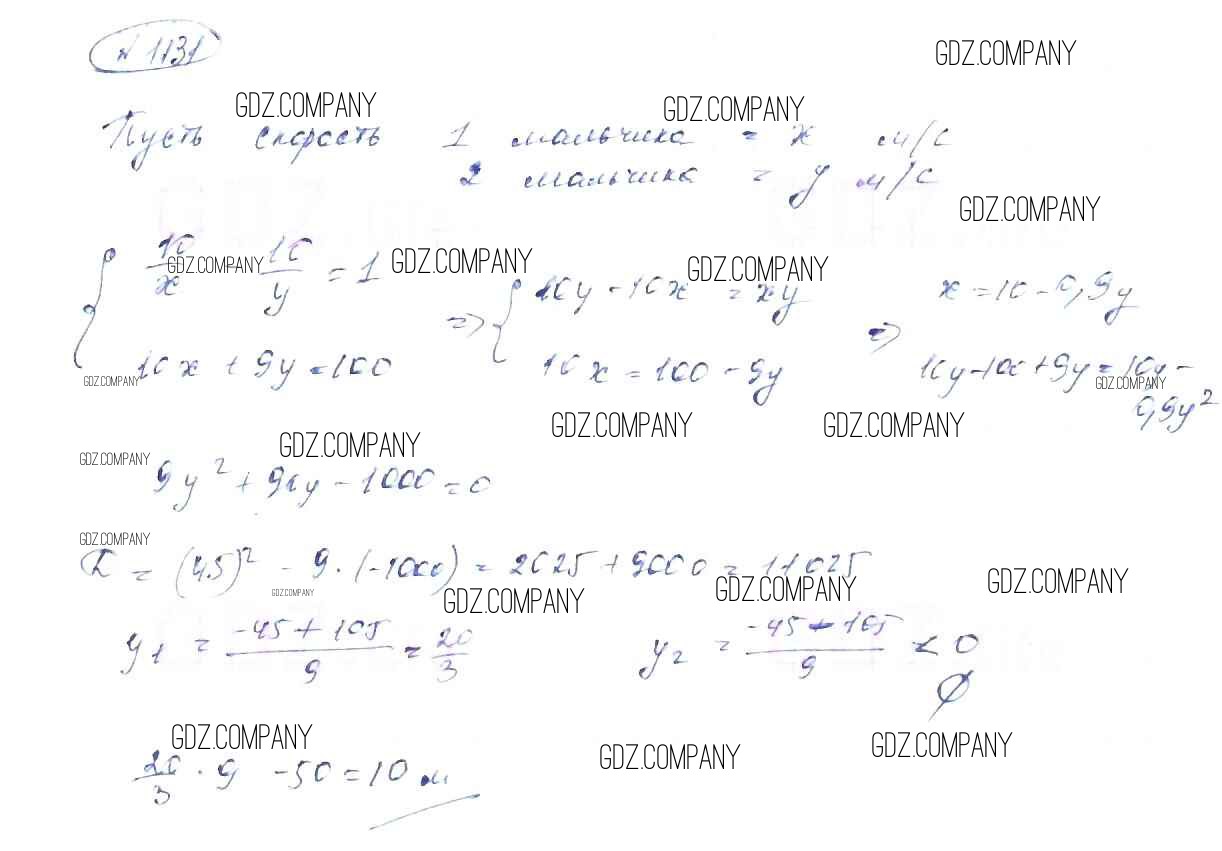 N 1131
GDZ.COMPANY
GDZ.COMPANY GDZ.COMPANY
Пусть скорость 1 мальчика = x м/с
2 мальчика = y м/с
GDZ.COMPANY
10/x - 10/y = 1 10y - 10x = xy x = 10 - 0,9y
GDZ.COMPANY GDZ.COMPANY GDZ.COMPANY
=> =>
10x + 9y = 100 10x = 100 - 9y 10y - 100 + 9y = 10y -
0,9y²
GDZ.COMPANY GDZ.COMPANY
GDZ.COMPANY GDZ.COMPANY
GDZ.COMPANY GDZ.COMPANY
9y² + 90y - 1000 = 0
GDZ.COMPANY
D = (45)² - 9·(-1000) = 2025 + 9000 = 11025
GDZ.COMPANY GDZ.COMPANY GDZ.COMPANY GDZ.COMPANY
y₁ = (-45 + 105)/9 = 20/3 y₂ = (-45 - 105)/9 < 0
∅
GDZ.COMPANY GDZ.COMPANY GDZ.COMPANY
20/3 · 9 - 50 = 10 м